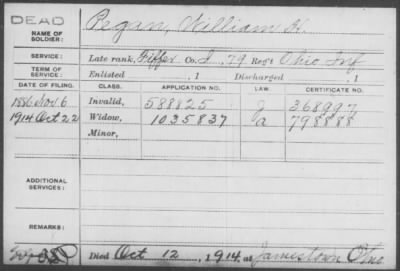 DEAD
NAME OF SOLDIER: Pegan, William H.
SERVICE: Late rank, Fiffer Co. I, 79 Reg't Ohio Inf
TERM OF SERVICE: Enlisted , 1 Discharged , 1
DATE OF FILING. CLASS. APPLICATION NO. LAW. CERTIFICATE NO.
1886 Nov. 6 Invalid, 588825 J 368997
1914 Oct 22 Widow, 1035837 a 798888
Minor,
ADDITIONAL SERVICES:
REMARKS:
Died Oct 12, 1914, at Jamestown Ohio